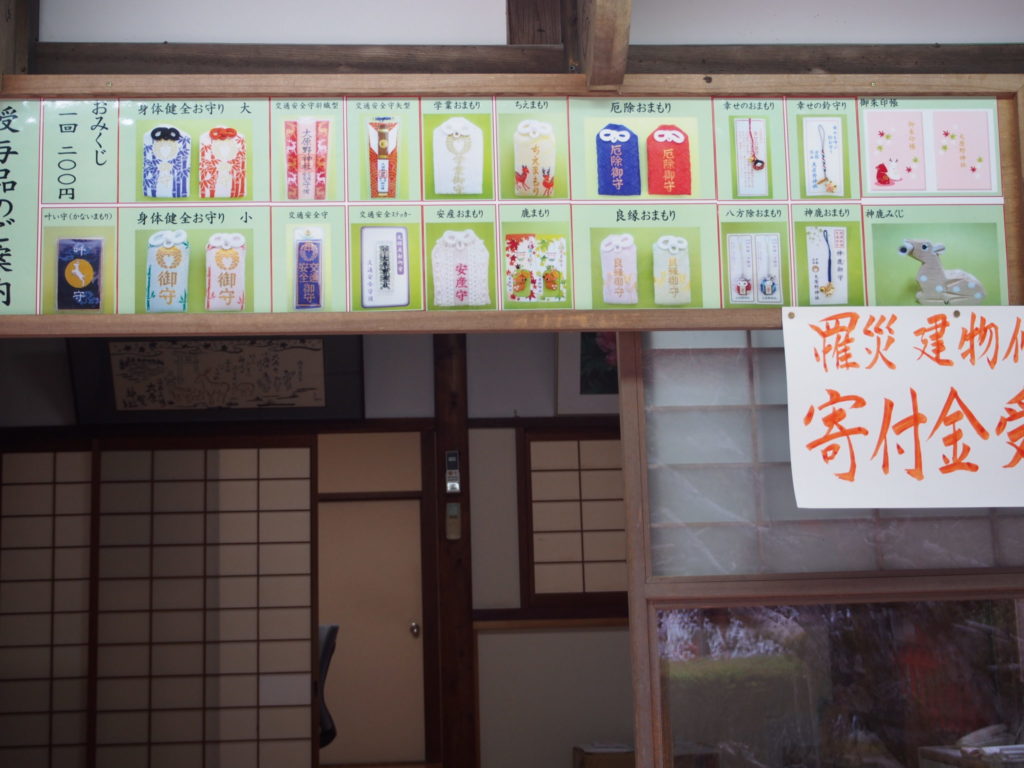 授与品のご案内
おみくじ
一回 二〇〇円
身体健全お守り 大
交通安全守羽織型
大原野神社
交通安全守矢型
学業おまもり
学業守
ちえまもり
ちえまもり
厄除おまもり
厄除御守
厄除御守
幸せのおまもり
幸せの鈴守り
御朱印帳
御朱印帳
大原野神社
叶い守(かないまもり)
叶
守
身体健全お守り 小
御守
御守
交通安全守
交通安全御守
交通安全ステッカー
交通安全守護
安産おまもり
安産守
鹿まもり
良縁おまもり
良縁御守
良縁御守
八方除おまもり
神鹿おまもり
神鹿御守
神鹿みくじ
罹災 建物
寄付金受